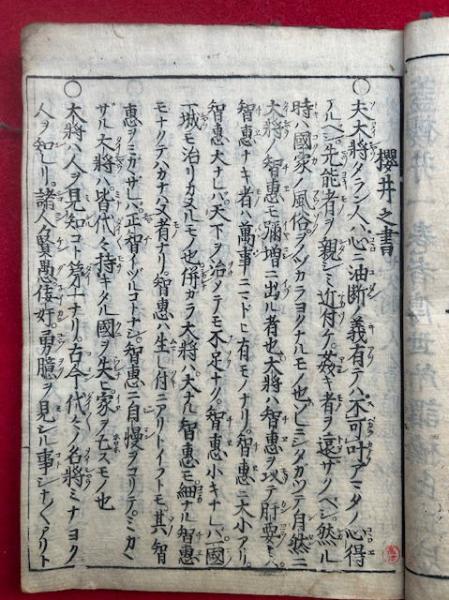 櫻井之書
〇夫大將タラン人ハ心ニ油断ノ義有テハ不可叶アマタノ心得
アルベシ先能者ヲ親シミ近付ケ姦キ者ヲ遠サクベシ然ル
時ハ國家ノ風俗ヲノヅカラヨクナルモノ也ソレニシタカツテ自然ニ
大將ノ智惠モ彌増ニ出ル者也大將ハ智惠ヲ以テ肝要トス
智惠ナキ者ハ萬事ニマドヒ有モノナリ智惠ニ大小アリ
智惠大ナレバ天下ヲ治メテモ不足ナシ智惠小キナレバ國
一城モ治リカヌルモノ也併ガラ大將ハ大ナル智惠モ細ナル智惠
モナクテハカナハヌ者ナリ智惠ハ生レ付ニアリトイフトモ其智
惠ヲミガヽサレハ正智イヅルコトナシ智惠ニ自慢ヲコリテミガヽ
ザル大將ハ皆代々持キタル國ヲ失ヒ家ヲ亡スモノ也
〇大將ハ人ヲ見知コト第一ナリ古今代々ノ名將ミナヨク
人ヲ知レリ諸人ノ賢愚佞奸勇臆ヲ見シル事シナ〱アリト